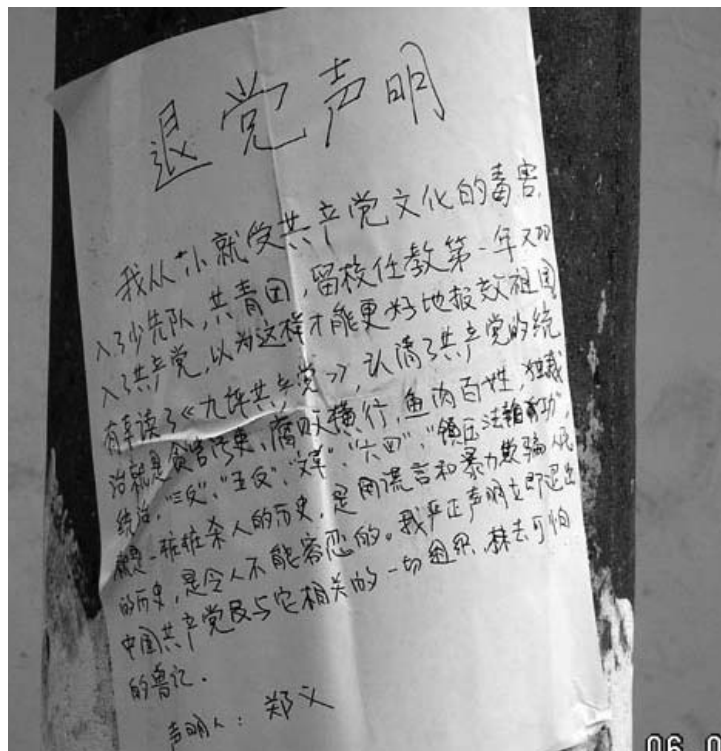 退党声明
我从小就受共产党文化的毒害,
入了少先队,共青团,留校任教第一年又加
入了共产党,以为这样才能更好地报效祖国
有幸读了《九评共产党》,认清了共产党的统
治就是贪官污吏、腐败横行,鱼肉百姓,独裁
统治,“三反”、“五反”、“文革”、“六四”、“镇压法轮功”,
就是一桩桩杀人的历史,是用谎言和暴力欺骗人民
的历史,是令人不能容忍的。我严正声明立即退出
中国共产党及与它相关的一切组织,抹去可怕
的兽记.
声明人:郑义
06.0